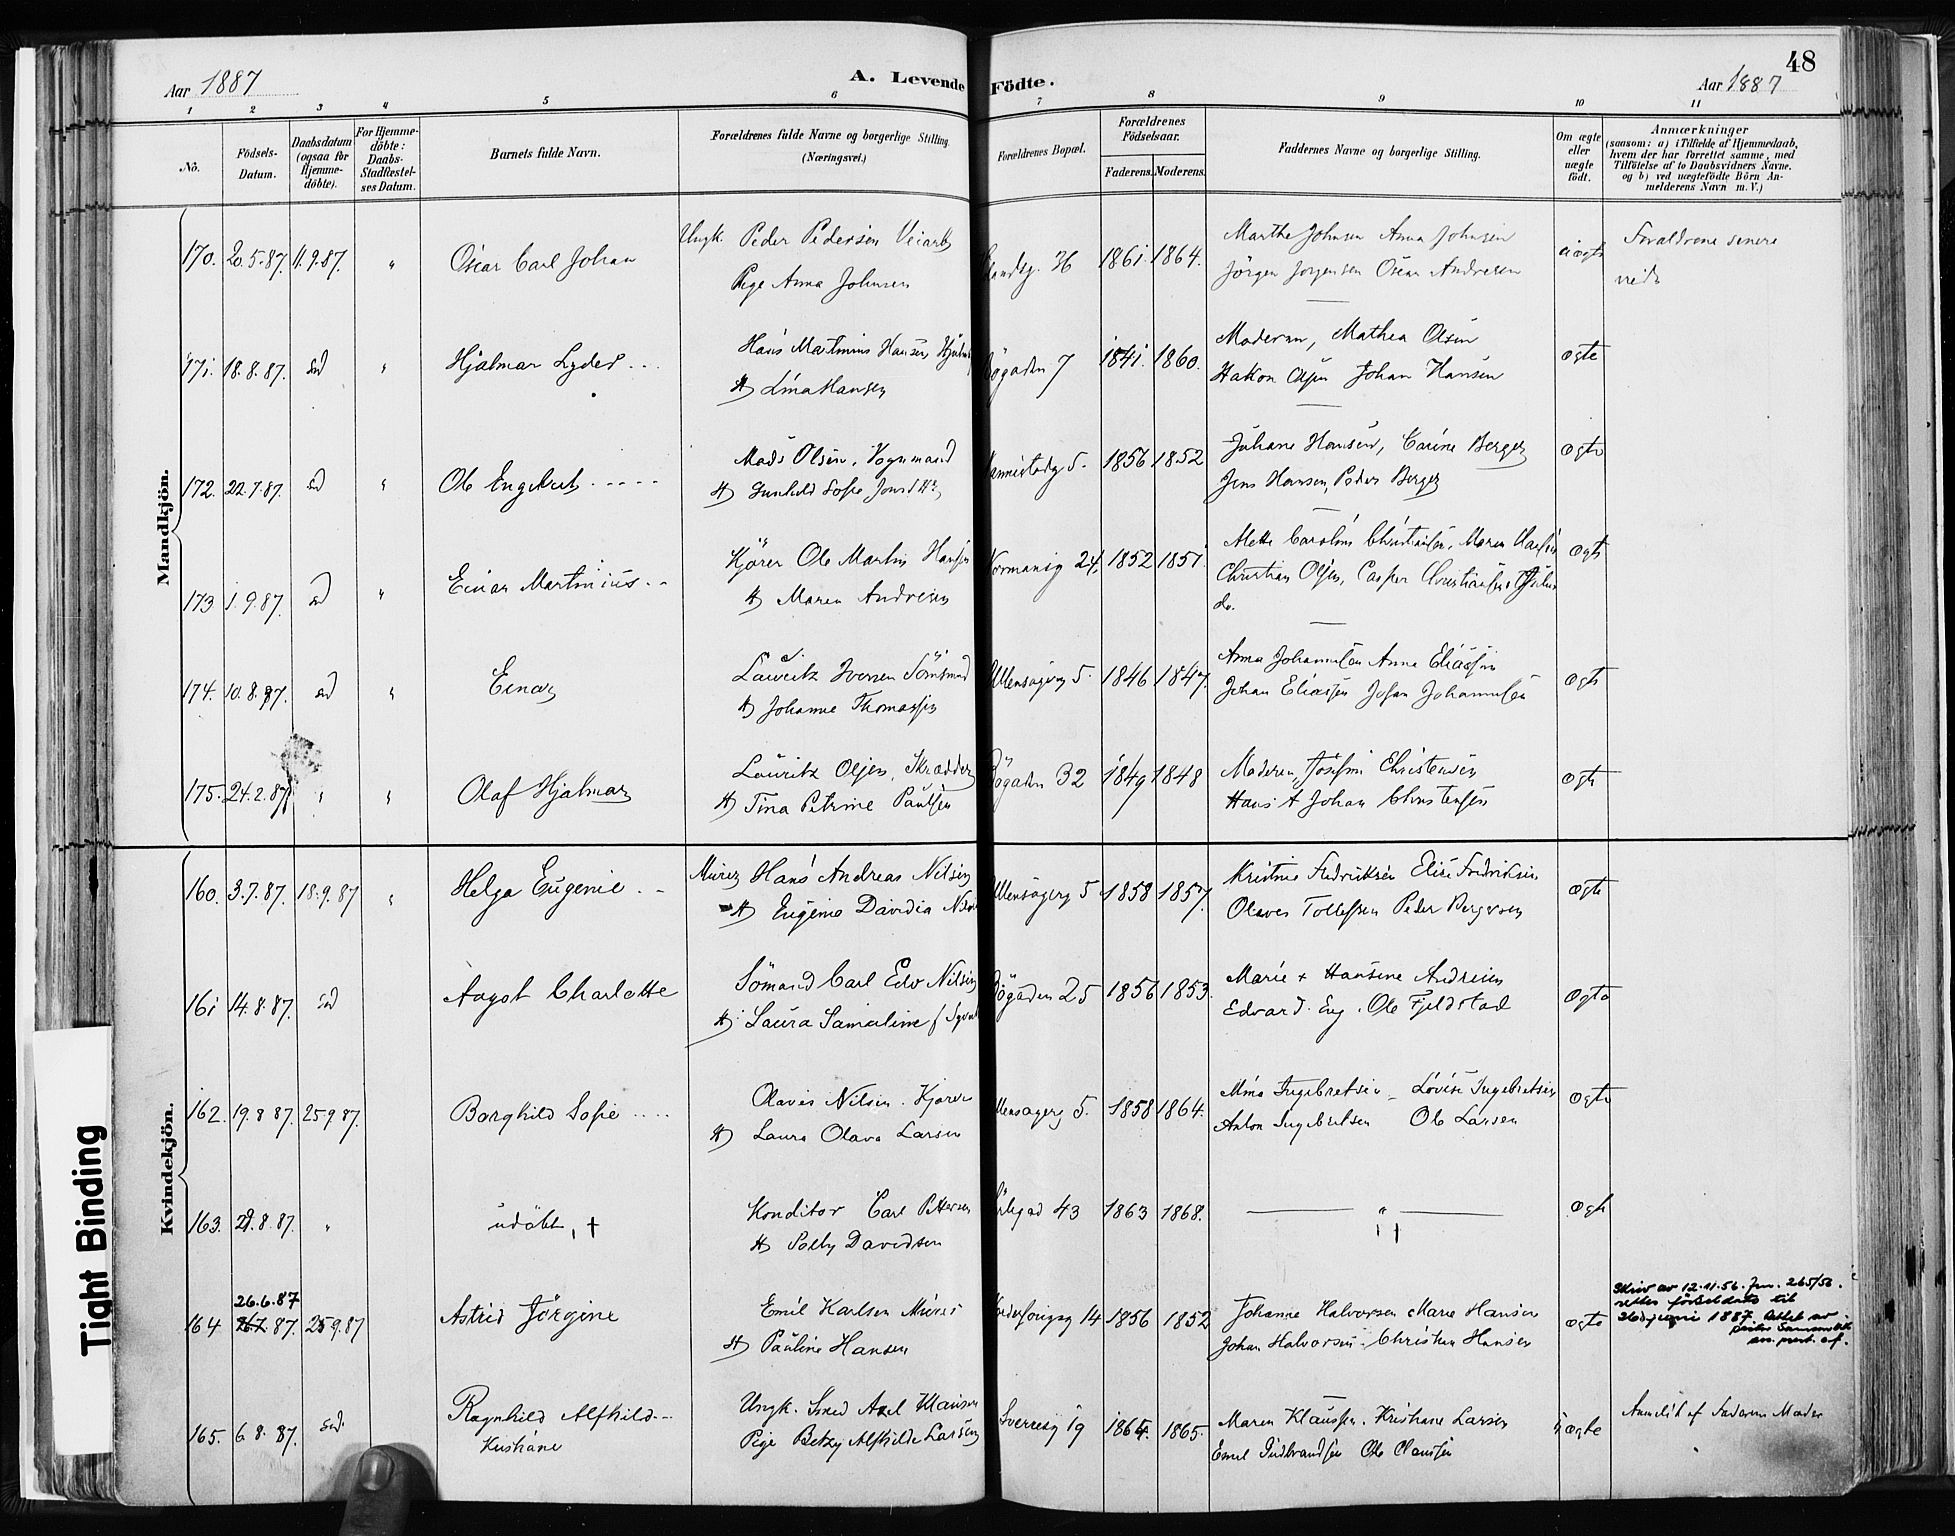 48
Aar 1887
A. Levende Födte.
Aar 1887
1 2 3 4 5 6 7 8 9 10 11
No.
Födsels-
Datum.
Daabsdatum
(ogsaa for
Hjemme-
döbte).
For Hjemme-
döbte:
Daabs-
Stadfæstel-
ses Datum.
Barnets fulde Navn.
Forældrenes fulde Navne og borgerlige Stilling.
(Næringsvei.)
Forældrenes Bopæl.
Forældrenes
Födselsaar.
Faderens. Moderens.
Faddernes Navne og borgerlige Stilling.
Om ægte
eller
uægte
födt.
Anmærkninger
(saasom: a) i Tilfælde af Hjemmedaab,
hvem der har forrettet samme, med
Tilföielse af to Daabsvidners Navne.
og b) ved uægtefödte Börn An-
melderens Navn m. V.)
Mandkjön.
170. 20.5.87. 11.9.87. " Oscar Carl Johan
Ungk. Peder Pedersen
Pige Anna Johnsen
36 1861. 1864.
Marthe Johnsen Anna Johnsen
Jörgen Jorgensen Oscar Andresen
uægte
Forældrene senere
viede
171. 18.8.87. sd " Hjalmar Lyder
Hans Martinius Hansen
H Lina Hansen
Bögaden 7 1841. 1860.
Moderen, Mathea Olsen
Hakon Olsen Johan Hansen
ægte
172. 22.7.87. sd " Ole Engebret
Mads Olsen, Vognmand
H Gunhild Sofie
5. 1856 1852
Johane Hansen, Carine Berger
Jens Hansen, Peder Berger
ægte
173 1.9.87. sd " Einar Martinius
Kjörer Ole Martin Hansen
H Maren Andresen
Normansg 24, 1852 1851
Mette Caroline Christiansen, Maren
Christian Olsen, Casper Christiansen
do.
ægte
174. 10.8.87. sd " Einar
Lauritz Iversen Sömand
H Johanne Thomassen
Ullensagerg 5. 1846 1847.
Anna Johannesen Anne Eliassen
Johan Eliassen Johan Johannesen
ægte
175. 24.2.87 " " Olaf Hjalmar
Lauritz Olsen, Skrædder
H Tina Petrine Paulsen
Bögaden 32 1849 1848
Moderen, Josefine Christensen
Hans A Johan Christensen
ægte
Kvindekjön.
160. 3.7.87. 18.9.87 " Helga Eugenie
Murer Hans Andreas Nilsen
H Eugenie Davidia
Ullensagerg 5 1858 1857.
Kristine Fredriksen Elise Fredriksen
Olaves Tollefsen Peder Bergersen
ægte
161 14.8.87. sd Aagot Charlotte
Sömand Carl Edv Nilsen
H Laura Samaline f
Bögaden 25 1856 1853.
Marie + Hansine Andresen
Edvard Eng. Ole Fjeldstad
ægte
162. 19.8.87. 25.9.87. Borghild Sofie
Olaves Nilsen. Kjörer
H Laura Olava Larsen
Ullensagerg 5. 1858 1864.
Mina Ingebretsen Lovise Ingebretsen
Anton Ingebretsen Ole Larsen
ægte
163. 28.8.87. " udöbt, †
Konditor Carl Pettersen
H Selly Davidsen
43 1863 1868.
" †
ægte
26.6.87
164 26.7.87. 25.9.87 Astrid Jörgine
Emil Karlsen Murer
H Pauline Hansen
14 1856 1852
Johanne Halvorsen Marie Hansen
Johan Halvorsen. Christian Hansen
ægte
Skriv av 12.11.56. Jnr. 265/56.
retter födseldato til
26 juni 1887.
165. 6.8.87. sd. Ragnhild Alfhild
Kristiane
Ungk. Smed Axel Klausen
Pige Betzy Alfhilde Larsen
Sverresg 19 1864. 1865.
Maren Klausen. Kristiane Larsen
Emil Gudbrandsen Ole Clausen
uægte
Anmeldt af Faderens Moder
Tight Binding